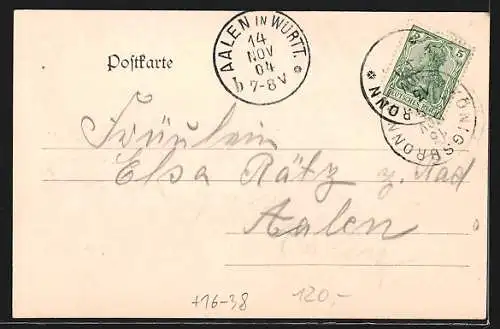 AALEN IN WÜRTT.
14
NOV
04
b 7-8V
Postkarte
5 5
DEUTSCHES REICH
KÖNIGSBRONN
Fräulein
Elsa Rätz z. Rad
Aalen
+16-38 120,-